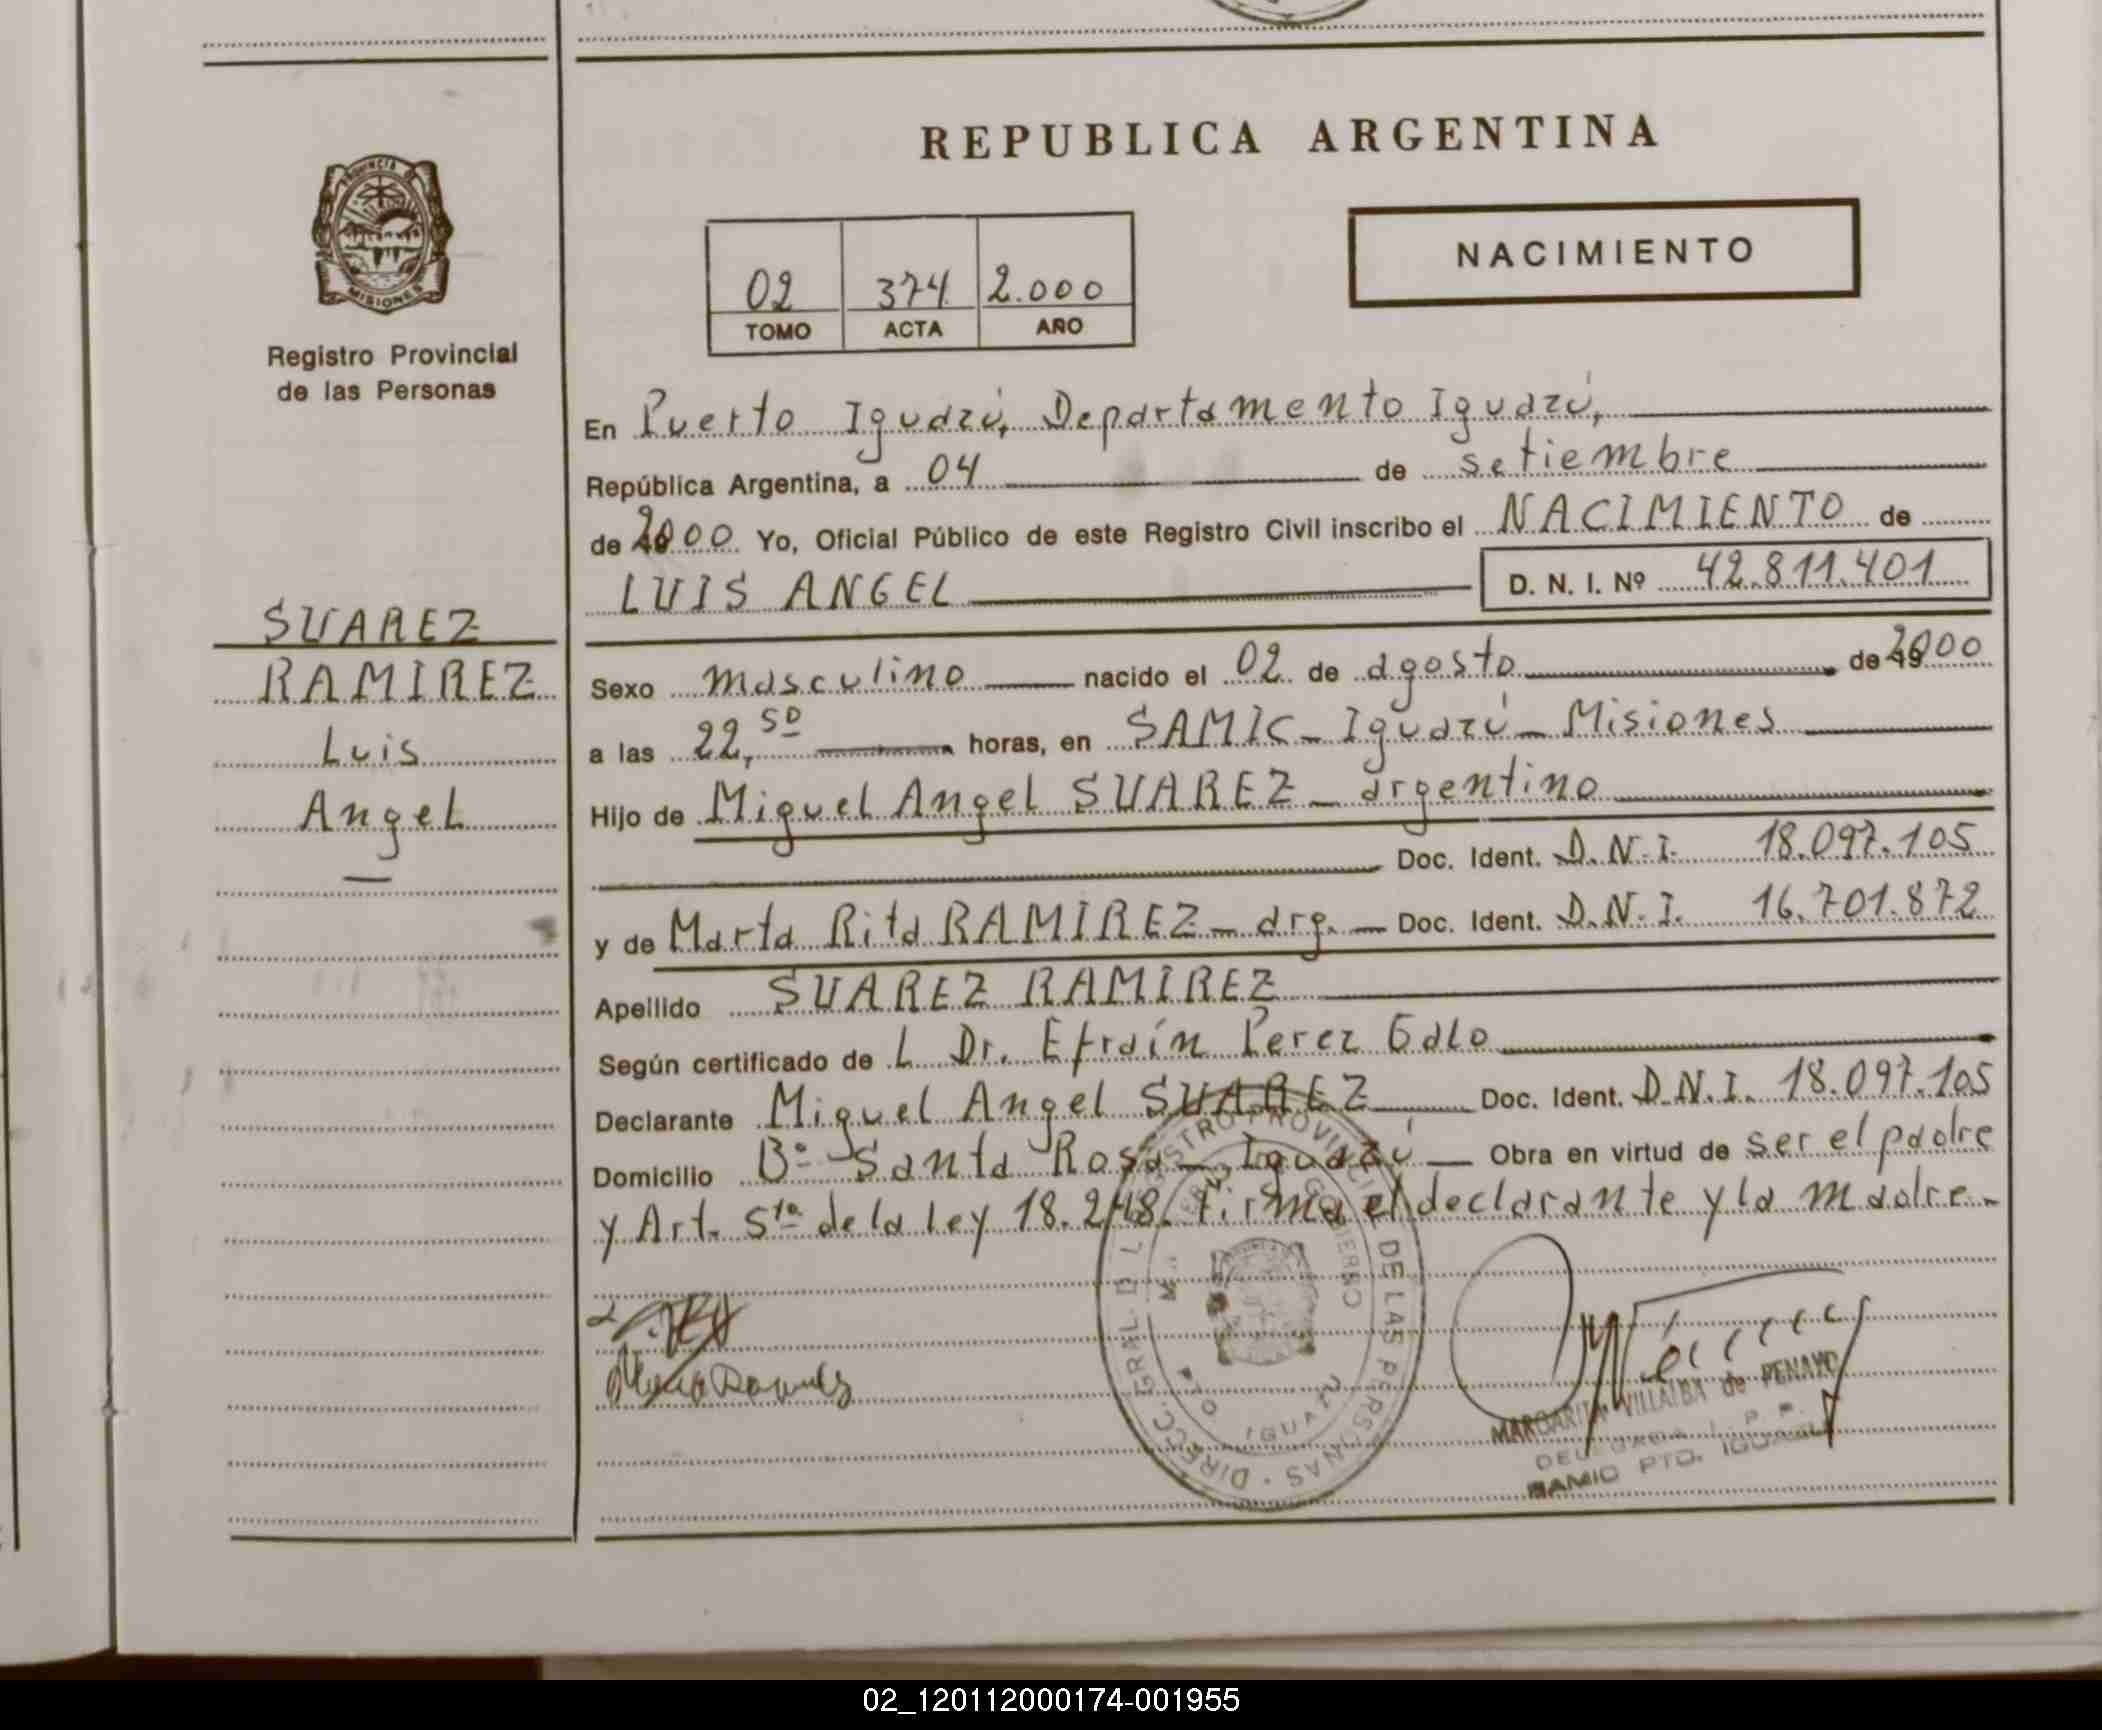 REPUBLICA ARGENTINA
PROVINCIA DE
MISIONES
Registro Provincial
de las Personas
02 374 2.000
TOMO ACTA AÑO
NACIMIENTO
En Puerto Iguazú, Departamento Iguazú,
República Argentina, a 04 de setiembre
de 2000 Yo, Oficial Público de este Registro Civil inscribo el NACIMIENTO de
LUIS ANGEL D. N. I. Nº 42.811.401
SUAREZ
RAMIREZ
Luis
Angel
Sexo masculino nacido el 02 de agosto de 2000
a las 22,50 horas, en SAMIC - Iguazú - Misiones
Hijo de Miguel Angel SUAREZ - argentino
Doc. Ident. D.N.I. 18.097.105
y de Marta Rita RAMIREZ - arg. - Doc. Ident. D.N.I. 16.701.872
Apellido SUAREZ RAMIREZ
Según certificado de L Dr. Efraín Perez Galo
Declarante Miguel Angel SUAREZ Doc. Ident. D.N.I. 18.097.105
Domicilio Bº Santa Rosa - Iguazú - Obra en virtud de ser el padre
y Art. 5to de la ley 18.248. Firma el declarante y la madre.-
DIRECC. GRAL. DEL REGISTRO PROVINCIAL DE LAS PERSONAS
GOBIERNO
IGUAZU
MARGARITA VILLALBA de PENAYO
DELEGADA R. P. P.
SAMIC PTO. IGUAZU
02_120112000174-001955